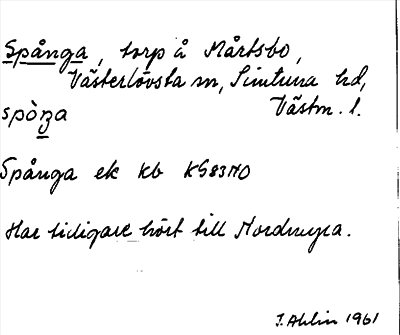 Spånga, torp å Mårtsbo,
Västerlövsta sn, Simtuna hd,
spòŋa Västm. l.
Spånga ek kb KS83NO
Har tidigare hört till Nordmyra.
J. Ahlin 1961